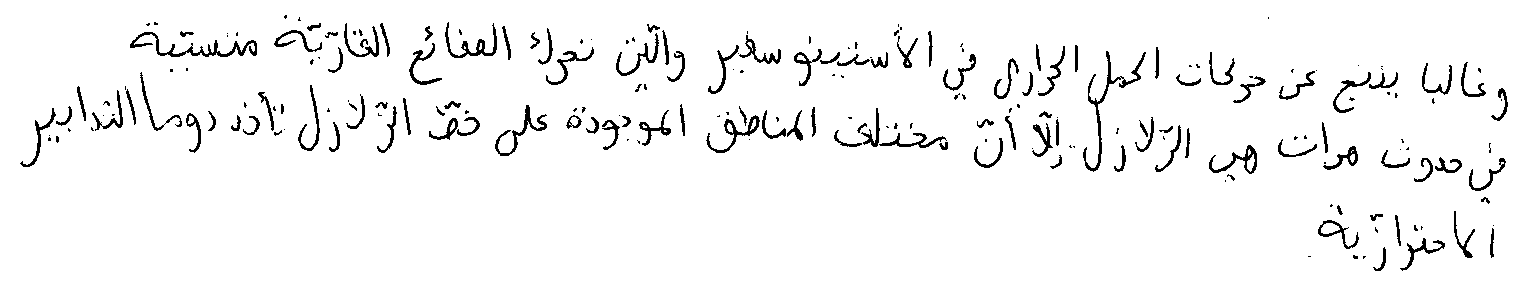 وغالبا ينتج عن حركات الحمل الحراري في الأستينوسفير والّتي تحرك الصفائح القارّيّة متسببة
في حدوث هزات هي الزّلازل إلّا أنّ مختلف المناطق الموجودة على خطّ الزّلازل تأخذ دوما التدابير
الاحترازيّة